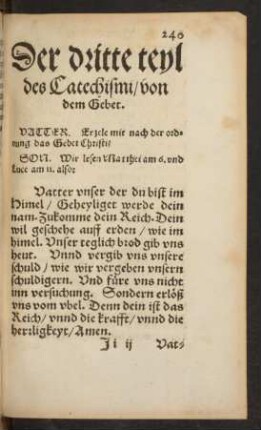 240
Der dritte teyl
des Catechismi/von
dem Gebet.
VATTER. Erzele mir nach der ord-
nung das Gebet Christi/
SON. Wir lesen Matthei am 6. vnd
Luce am 11. also:
Vatter vnser der du bist im
Himel/ Geheyliget werde dein
nam. Zukomme dein Reich. Dein
wil geschehe auff erden/ wie im
himel. Vnser teglich brod gib vns
heut. Vnnd vergib vns vnsere
schuld/ wie wir vergeben vnsern
schuldigern. Vnd füre vns nicht
inn versuchung. Sondern erlöß
vns vom vbel. Denn dein ist das
Reich/ vnnd die krafft/ vnnd die
herrligkeyt/ Amen.
Ii ij Vat-